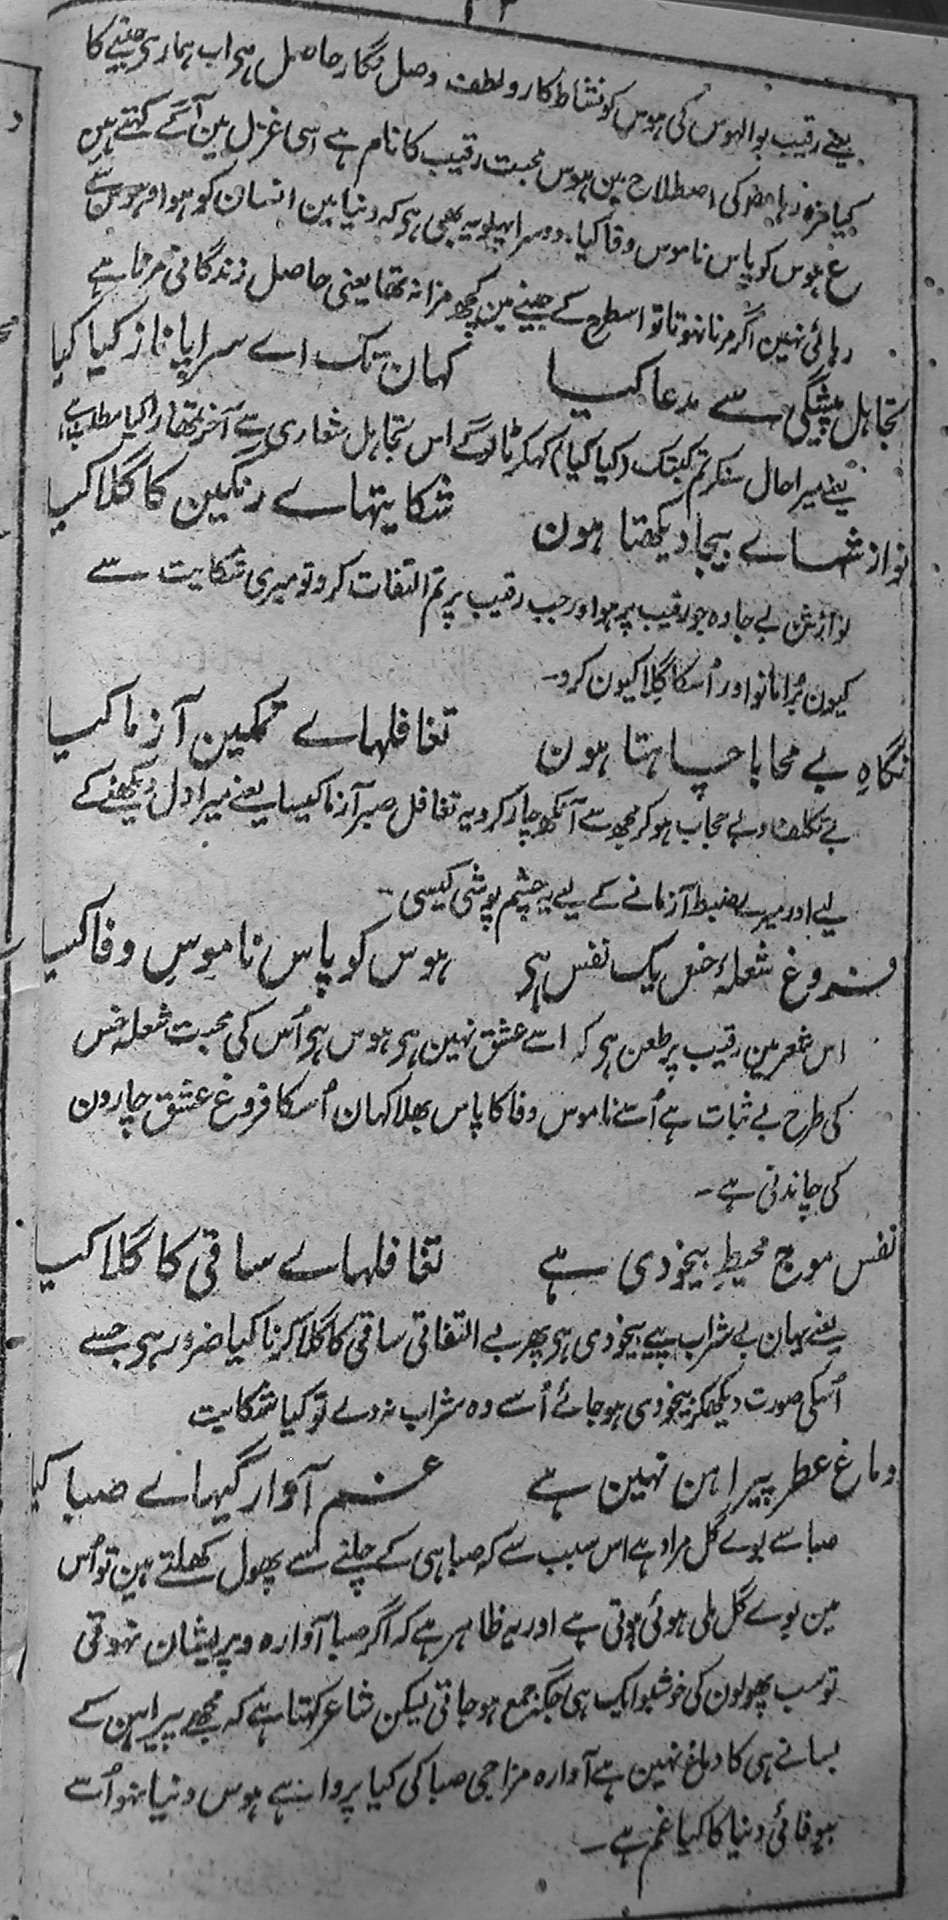 یعنے رقیب بوالہوس کی ہوس کو نشاط کار و لطف وصل نگار حاصل ہی اب ہماری جینے کا
کیا مزہ رہا شعرا کی اصطلاح مین ہوس محبت رقیب کا نام ہے اسی غزل مین آگے کہتے ہین
ع ہوس کو پاس ناموس وفا کیا۔ دوسرا پہلو یہ بھی ہی کہ دنیا مین انسان کو ہوا و ہوس سے
رہائی نہین اگر مرنا نہوتا تو اسطرح کے جینے مین کچھ مزا نہ تھا یعنی حاصل زندگانی مرنا ہے
تجاہل پیشگی سے مدعا کیا کہان تک اے سراپا ناز کیا کیا
یعنے میرا حال سنکر تم کبتک (کیا کیا) کہکر ٹالوگے اس تجاہل شعاری سے آخر تمھارا کیا مطلب ہے
نوازشہاے بیجا دیکھتا ہون شکایتہاے رنگین کا گلا کیا
نوازش بے جا وہ جو رقیب پر ہو اور جب رقیب پر تم التفات کرو تو میری شکایت سے
کیون بُرا مانو اور اُسکا گلا کیون کرو۔
نگاہِ بے محابا چاہتا ہون تغافلہاے تمکین آزما کیا
بے تکلف و بے حجاب ہو کر مجھ سے آنکھ چار کرو یہ تغافل صبر آزما کیسا یعنے میرا دل دیکھنے کے
لیے اور میرے ضبط آزمانے کے لیے یہ چشم پوشی کیسی۔
فروغ شعلۂ خس یک نفس ہی ہوس کو پاس ناموسِ وفا کیا
اس شعر مین رقیب پر طعن ہی کہ اسے عشق نہین ہی ہوس ہی اُس کی محبت شعلۂ خس
کی طرح بے ثبات ہے اُسے ناموس وفا کا پاس بھلا کہان اُسکا فروغ عشق چار دن
کی چاندنی ہے۔
نفس موج محیطِ بیخودی ہے تغافلہاے ساقی کا گلا کیا
یعنے یہان بے شراب پیے بیخودی ہی پھر بے التفاتی ساقی کا گلا کرنا کیا ضرور ہی جسے
اُسکی صورت دیکھکر بیخودی ہو جائے اُسے وہ شراب نہ دے تو کیا شکایت
دماغ عطر پیراہن نہین ہے غم آوارگیہاے صبا کیا
صبا سے بوے گل مراد ہے اس سبب سے کہ صبا ہی کے چلنے سے پھول کھلتے ہین تو اُس
مین بوے گل ملی ہوئی ہوتی ہے اور یہ ظاہر ہے کہ اگر صبا آوارہ و پریشان نہوتی
تو سب پھولون کی خوشبو ایک ہی جگہ جمع ہو جاتی لیکن شاعر کہتا ہے کہ مجھے پیراہن کے
بسانے ہی کا دماغ نہین ہے آوارہ مزاجی صبا کی کیا پروا ہے ہوس دنیا نہو اُسے
بیوفائی دنیا کا کیا غم ہے۔